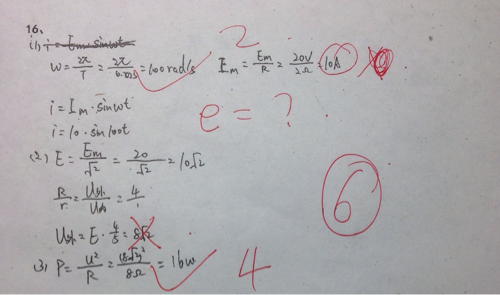 16、
(1) i = Em sinωt
2
ω = 2π/T = 2π/0.0628 = 100 rad/s Im = Em/R = 20V/2Ω = 10A
i = Im · sinωt
e = ?
i = 10 · sin100t
(2) E = Em/√2 = 20/√2 = 10√2
R/r = U外/U内 = 4/1
6
U外 = E · 4/5 = 8√2
(3) P = U²/R = (8√2)²/8Ω = 16W
4